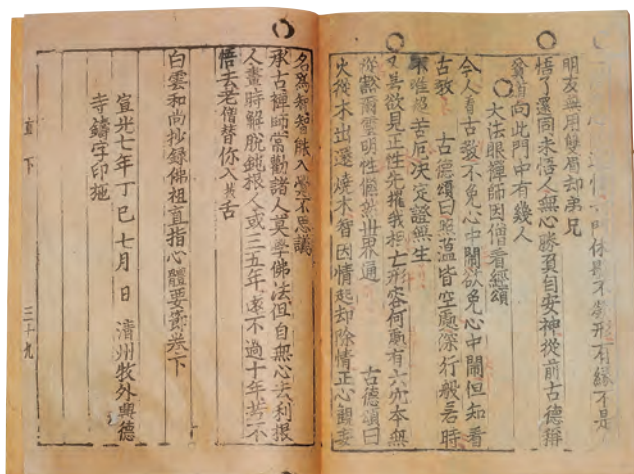 休影不勞形有緣不是
朋友無用雙眉却弟兄
悟了還同未悟人無心勝負自安神從前古德稱
貧道向此門中有幾人
大法眼禪師因僧看經頌
今人看古教不免心中鬧欲免心中鬧但知看
古教 古德頌曰照蘊皆空處深行般若時
唯超苦厄決定證無生
欲見正性先摧我相亡形容何處有六 本無
從豁爾靈明性翛然世界通 古德頌曰
火從木出還燒木智因情起却除情正心觀妄
名爲智智能入覺不思議
承古禪師常勸諸人莫學佛法但自無心去利根
人晝時解脫鈍根人或三五年遠不過十年若不
悟去老僧替你入拔舌
白雲和尚抄錄佛祖直指心體要節卷下
宣光七年丁巳七月 日 淸州牧外興德
寺鑄字印施
直下 三十九